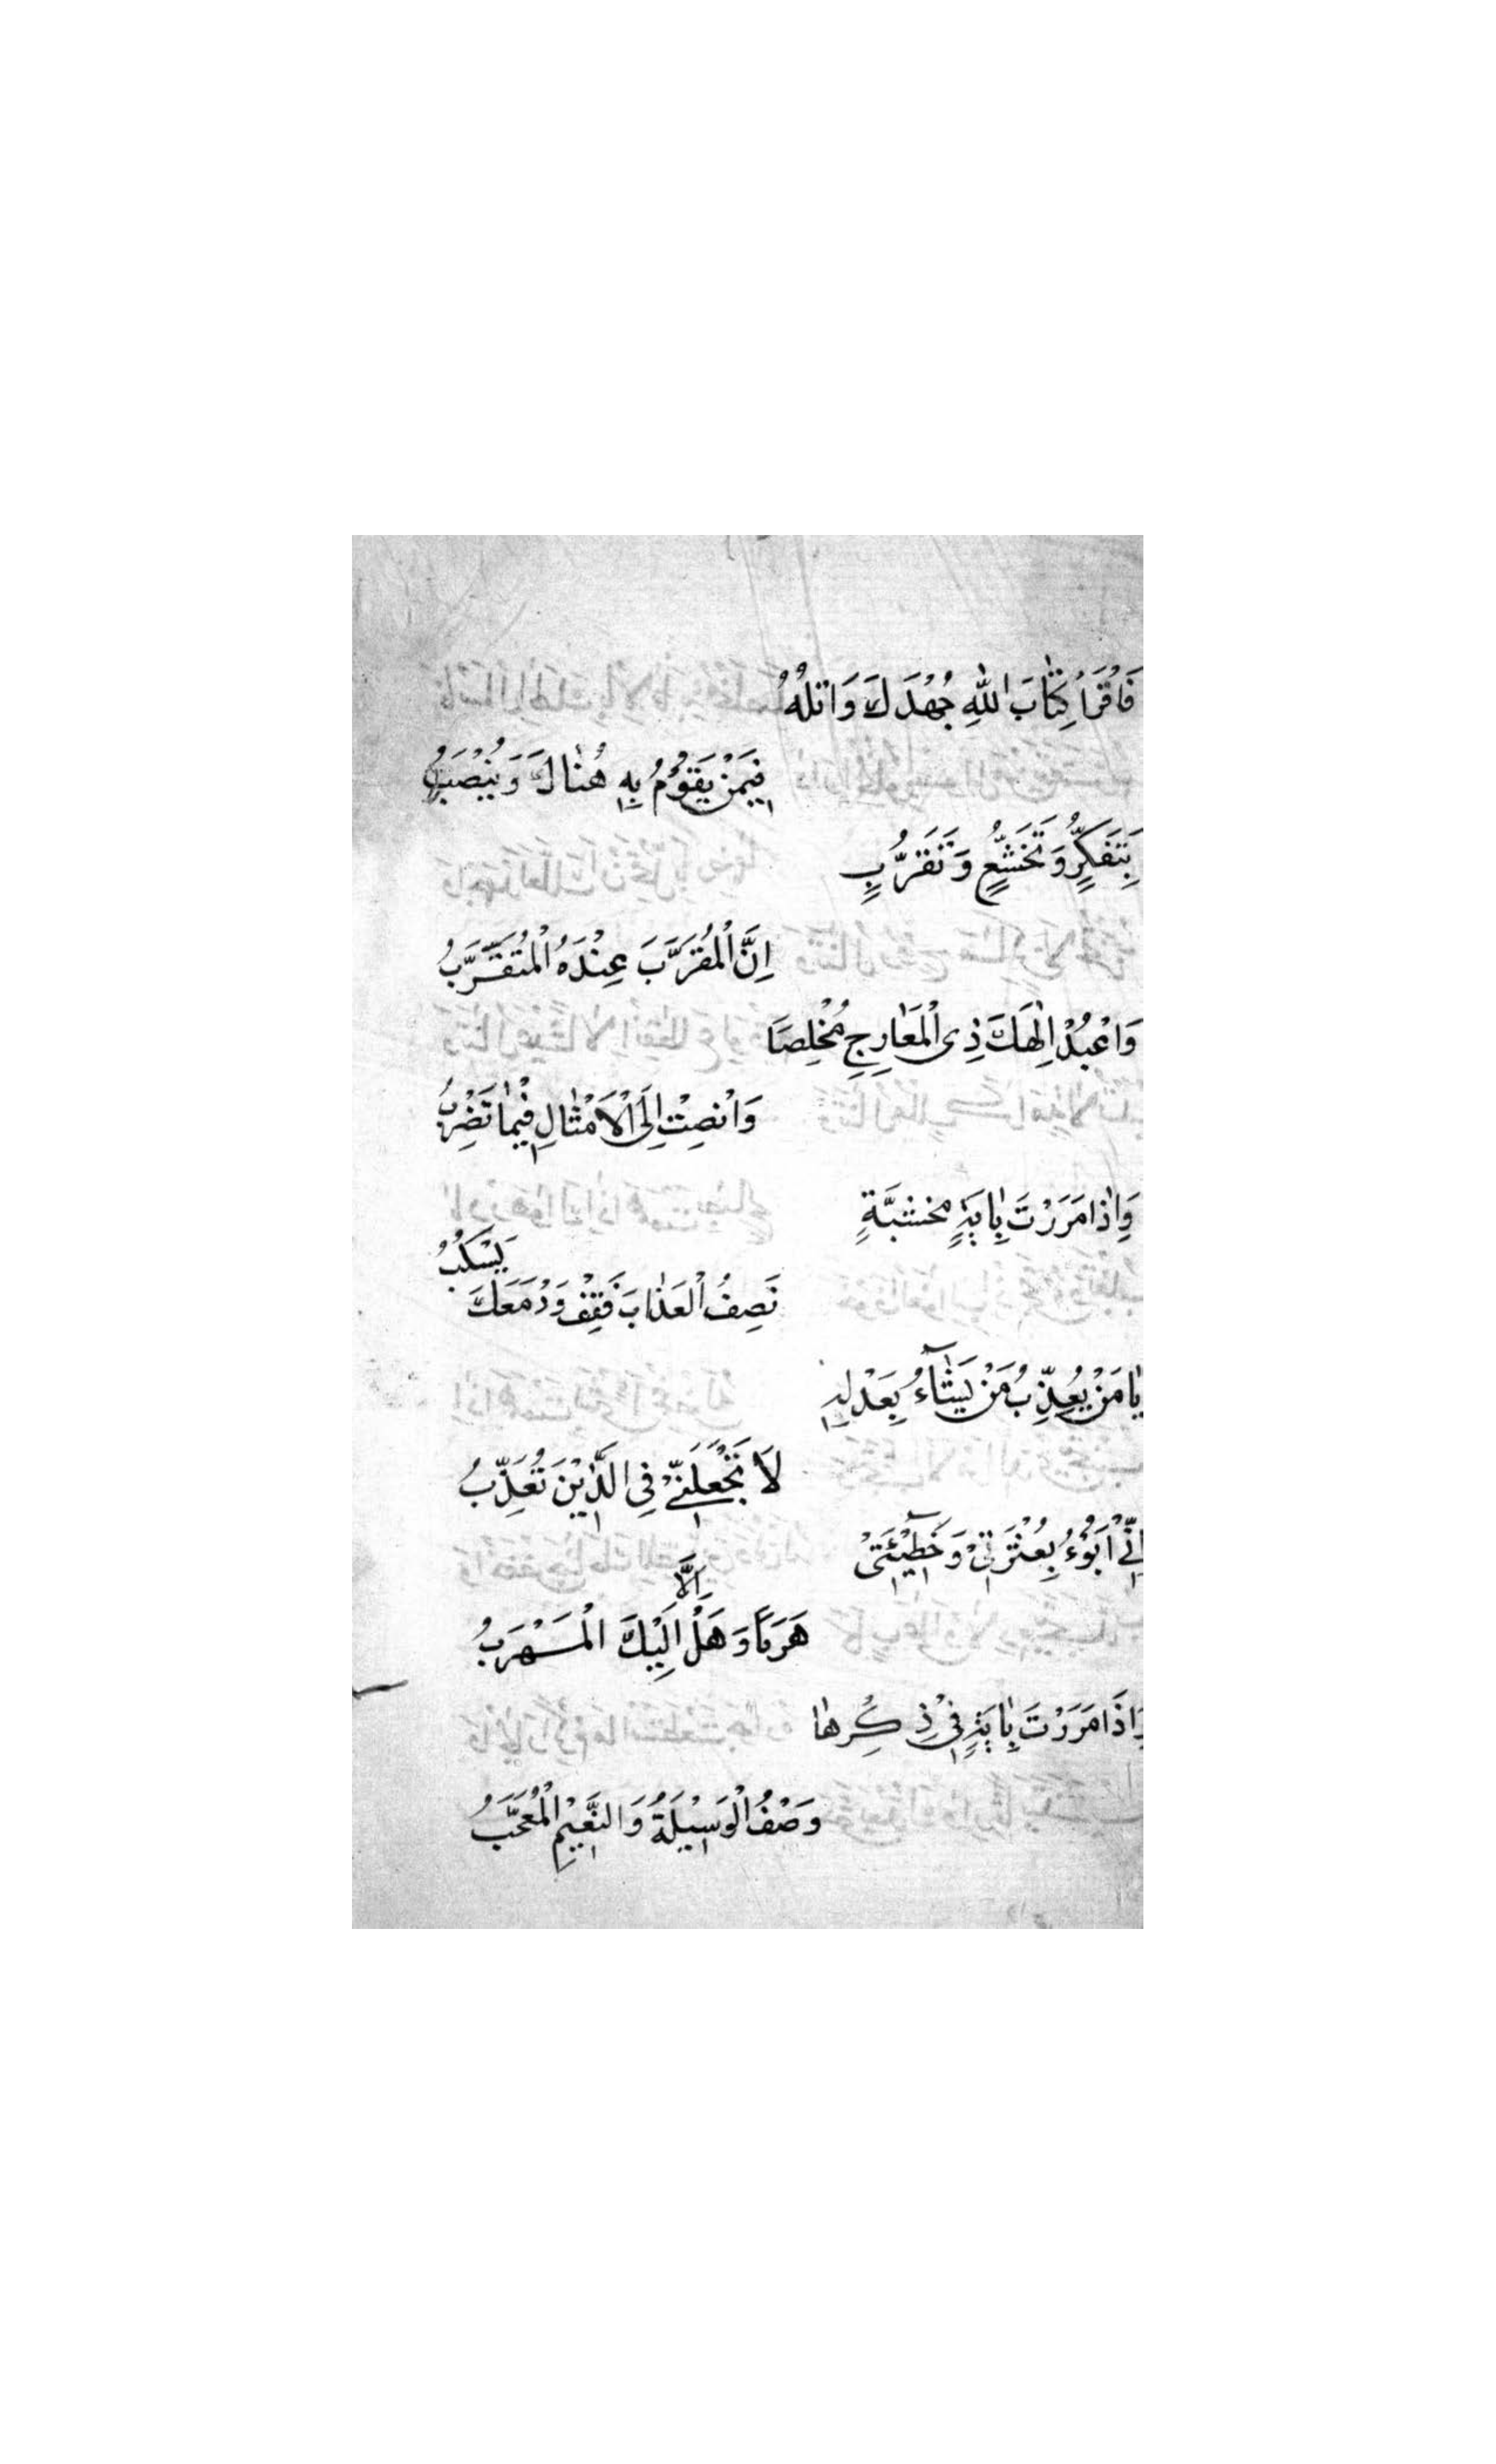 فَاقْرَأْ كِتَابَ اللّٰهِ جُهْدَكَ وَاتْلُهُ
فِيمَنْ يَقُوْمُ بِهِ هُنَاكَ وَيُنْصَبُ
بِتَفَكُّرٍ وَتَخَشُّعٍ وَتَقَرُّبٍ
اِنَّ الْمُقَرَّبَ عِنْدَهُ الْمُتَقَرِّبُ
وَاعْبُدْ اِلٰهَكَ ذِى الْمَعَارِجِ مُخْلِصًا
وَانْصِتْ اِلَى الْاَمْثَالِ فِيْمَا تَضْرِبُ
وَاِذَا مَرَرْتَ بِاٰيَةٍ مخشيَّةٍ
تَصِفُ الْعَذَابَ فَقِفْ وَدَمْعَكَ يَسْكُبُ
يَا مَنْ يُعَذِّبُ مَنْ يَشَآءُ بِعَدْلِهِ
لَا تَجْعَلَنِّيْ فِى الَّذِيْنَ تُعَذِّبُ
اِنِّيْ اَبُوْءُ بِعَثْرَتِيْ وَخَطِيْئَتِيْ
هَرَبًا وَهَلْ اِلَّا اِلَيْكَ الْمَهْرَبُ
وَاِذَا مَرَرْتَ بِاٰيَةٍ فِيْ ذِكْرِهَا
وَصْفُ الْوَسِيْلَةُ وَالنَّعِيْمِ الْمُعْجَبُ